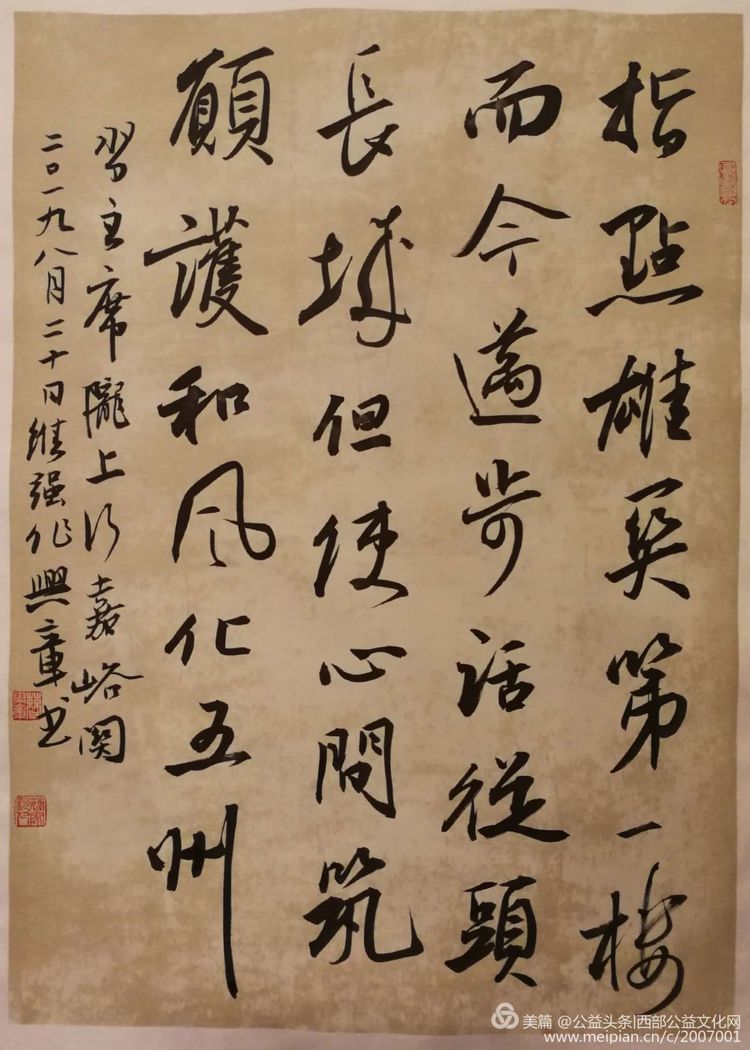 指點雄关第一樓
而今邁步話從頭
長城但使心間筑
願護和风化五州
習主席隴上行嘉峪関
二〇一九八月二十日維强作興章书
美篇 @公益头条|西部公益文化网
www.meipian.cn/c/2007001